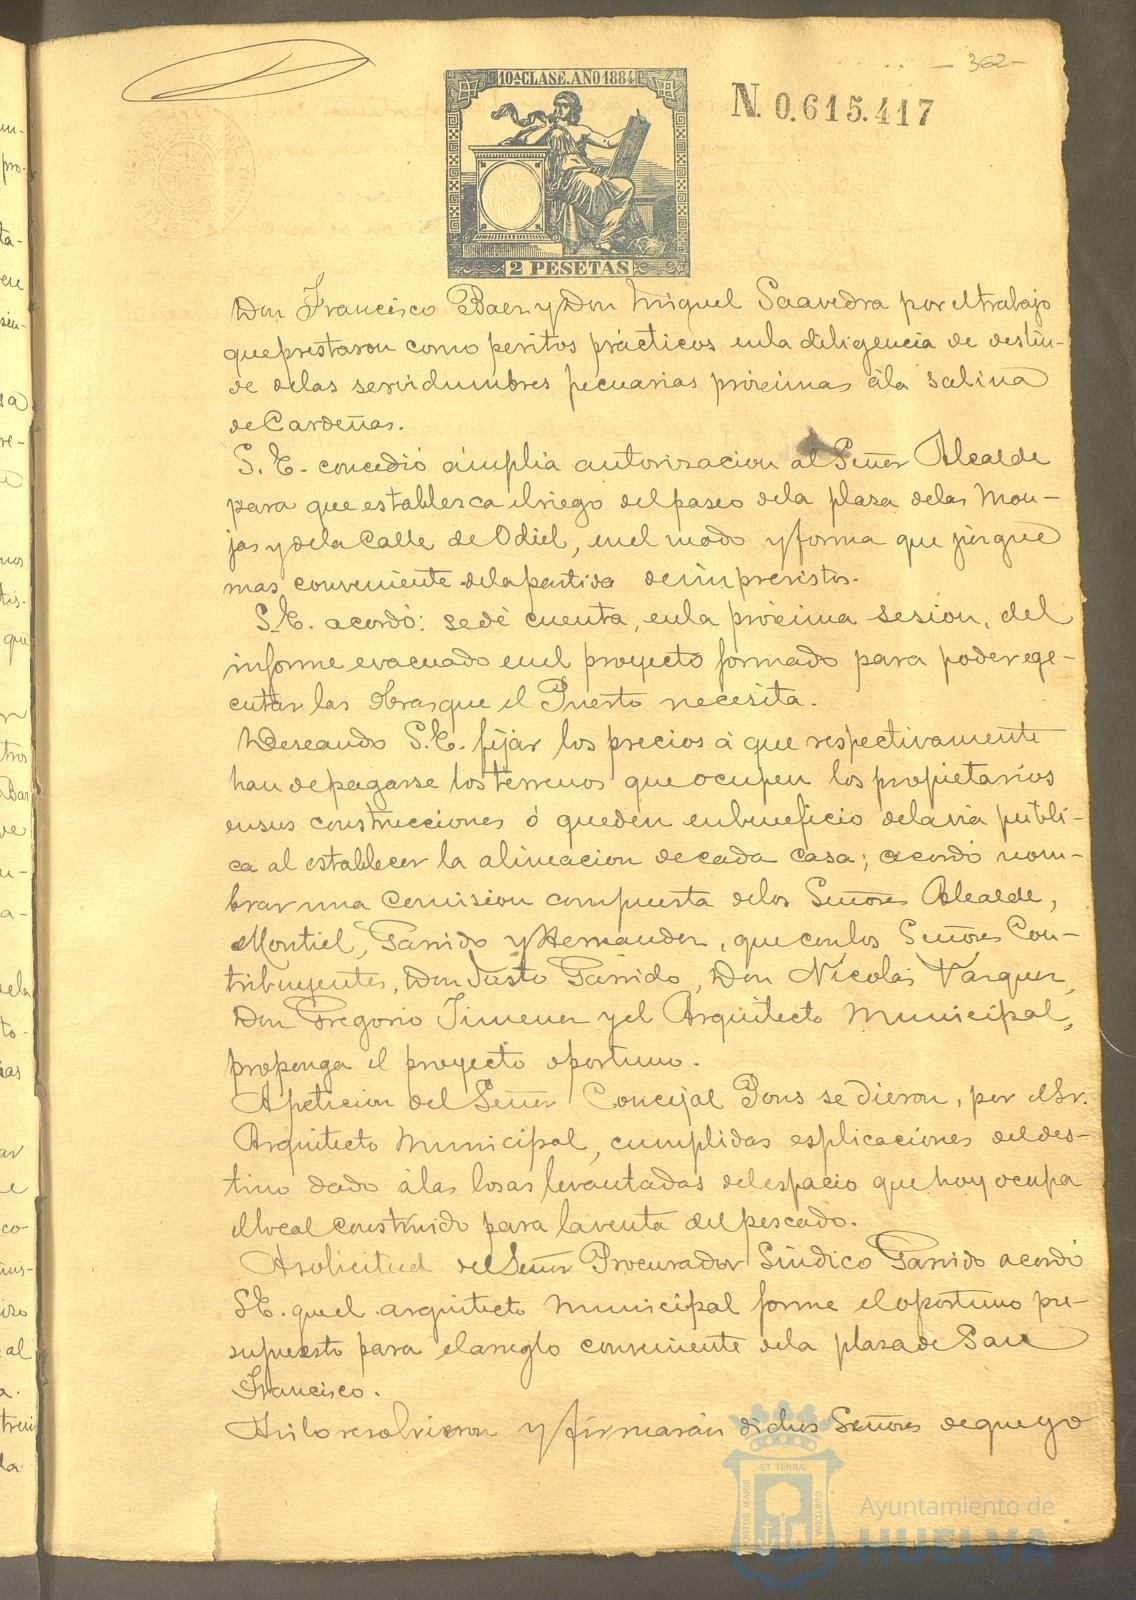 - 362 -
10ª CLASE. AÑO 1884
N. 0.615.417
2 PESETAS
Don Francisco Baez y Don Miguel Saavedra por el trabajo
que prestaron como peritos prácticos en la diligencia de deslin-
de de las servidumbres pecuarias próximas á la salina
de Cardeñas.
S. E. concedió ámplia autorizacion al Señor Alcalde
para que establesca el riego del paseo de la plaza de las Mon-
jas y de la Calle de Odiel, en el modo y forma que júzgue
mas conveniente de la partida de imprevistos.
S. E. acordó: se dé cuenta, en la próxima sesion, del
informe evacuado en el proyecto formado para poder ege-
cutar las obras que el Puerto necesita.
Deseando S. E. fijar los precios á que respectivamente
han de pagarse los terrenos que ocupen los propietarios
en sus construcciones ó queden en beneficio de la via públi-
ca al establecer la alineacion de cada casa; acordó nom-
brar una Comision compuesta de los Señores Alcalde,
Montiel, Garrido y Hernandez, que con los Señores Con-
tribuyentes, Don Justo Garrido, Don Nicolás Vazquez,
Don Gregorio Jimenez y el Arquitecto Municipal,
proponga el proyecto oportuno.
A peticion del Señor Concejal Pons se dieron, por el Sr.
Arquitecto Municipal, cumplidas esplicaciones del des-
tino dado á las losas levantadas del espacio que hoy ocupa
el local construido para la venta del pescado.
A solicitud del Señor Procurador Sindico Garrido acordó
S. E. que el arquitecto Municipal forme el oportuno pre-
supuesto para el arreglo conveniente de la plaza de San
Francisco.
Asi lo resolvieron y firmarán dichos Señores de que yo
ET TERRÆ
PORTUS MARIS
CUSTODIA
Ayuntamiento de
HUELVA